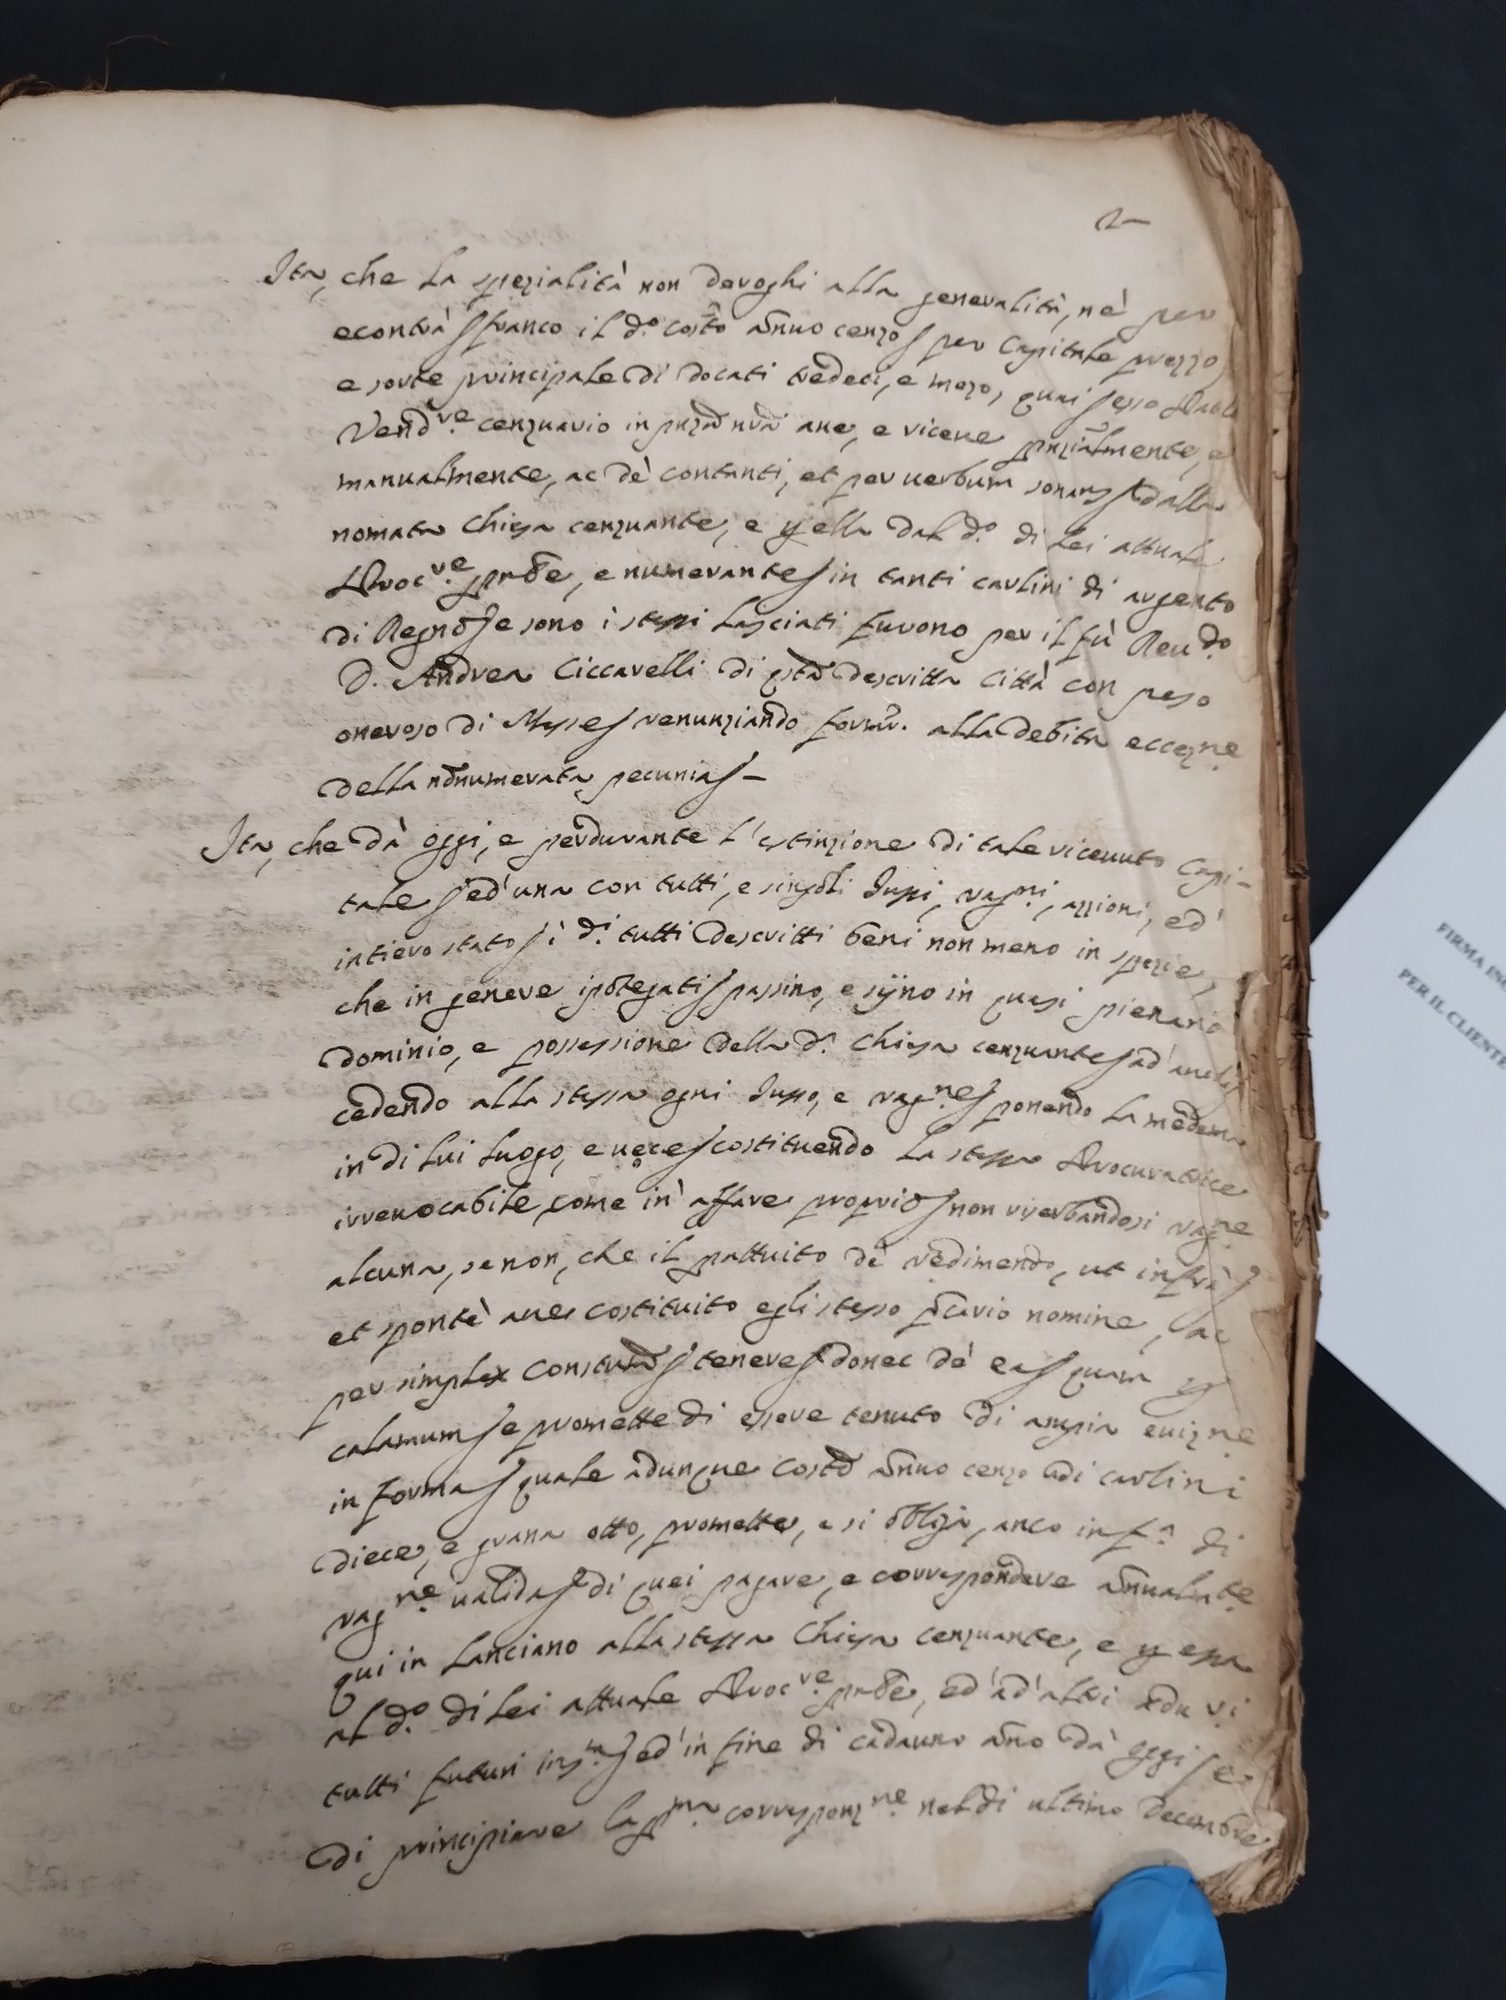 2
Ita, che la spezialità non deroghi alla generalità, nè per
econtrà franco il d.o costo annuo cenzo per Capitale prezzo,
e sorte principale di docati tredeci, e mezo, quai esso
Vend.re cenzuario in pnza nra ave, e riceve pnzialmente, e
manualmente, ac de contanti, et per uerbum sonans dalla
nomata Chiesa cenzuante, e p ella dal d.o di lei attuale
Procre pnte, e numerante in tanti carlini di argento
di Regno e sono i stessi lasciati furono per il fù Reu.do
D. Andrea Ciccarelli di qsta descritta Città con peso
oneroso di Messe renunziando form.r alla debita eccez.ne
della nonnumerata pecunia –
Ita, che dà oggi, e perdurante l'estinzione di tale riceuuto Capi-
tale ed'una con tutti, e singoli Jussi, rag.ni, azzioni, ed'
intiero stato i d.i tutti descritti beni non meno in spezie,
che in genere ipotegati passino, e sijno in quasi pienario
dominio, e possessione della d.a Chiesa cenzuante
cedendo alla stessa ogni Jusso, e rag.ne ponendo la medema
in di lui luogo, e uece costituendo la stessa Procuratrice
irreuocabile, come in' affare proprio non riserbandosi rag.ne
alcuna, se non, che il pattuito de redimendo, ut infrà
et spontè ave costituito egli stesso pcario nomine, ac
per simplex Constum tenere donec de ea quam p
calamum e promette di essere tenuto di ampia euiz.ne
in forma quale adunque costo annuo cenzo di carlini
diece, e grana otto, promette, e si obliga, anco in f.a di
rag.ne ualida di quei pagare, e corrispondere annualm.te
qui in Lanciano alla stessa Chiesa cenzuante, e p essa
al d.o di lei attuale Procre pnte, ed'ad'altri
tutti futuri ins.m ed'in fine di cadauno anno dà oggi e
di principiare la p.ma corrisponz.ne nel dì ultimo Decembre
FIRMA
PER IL CLIENTE